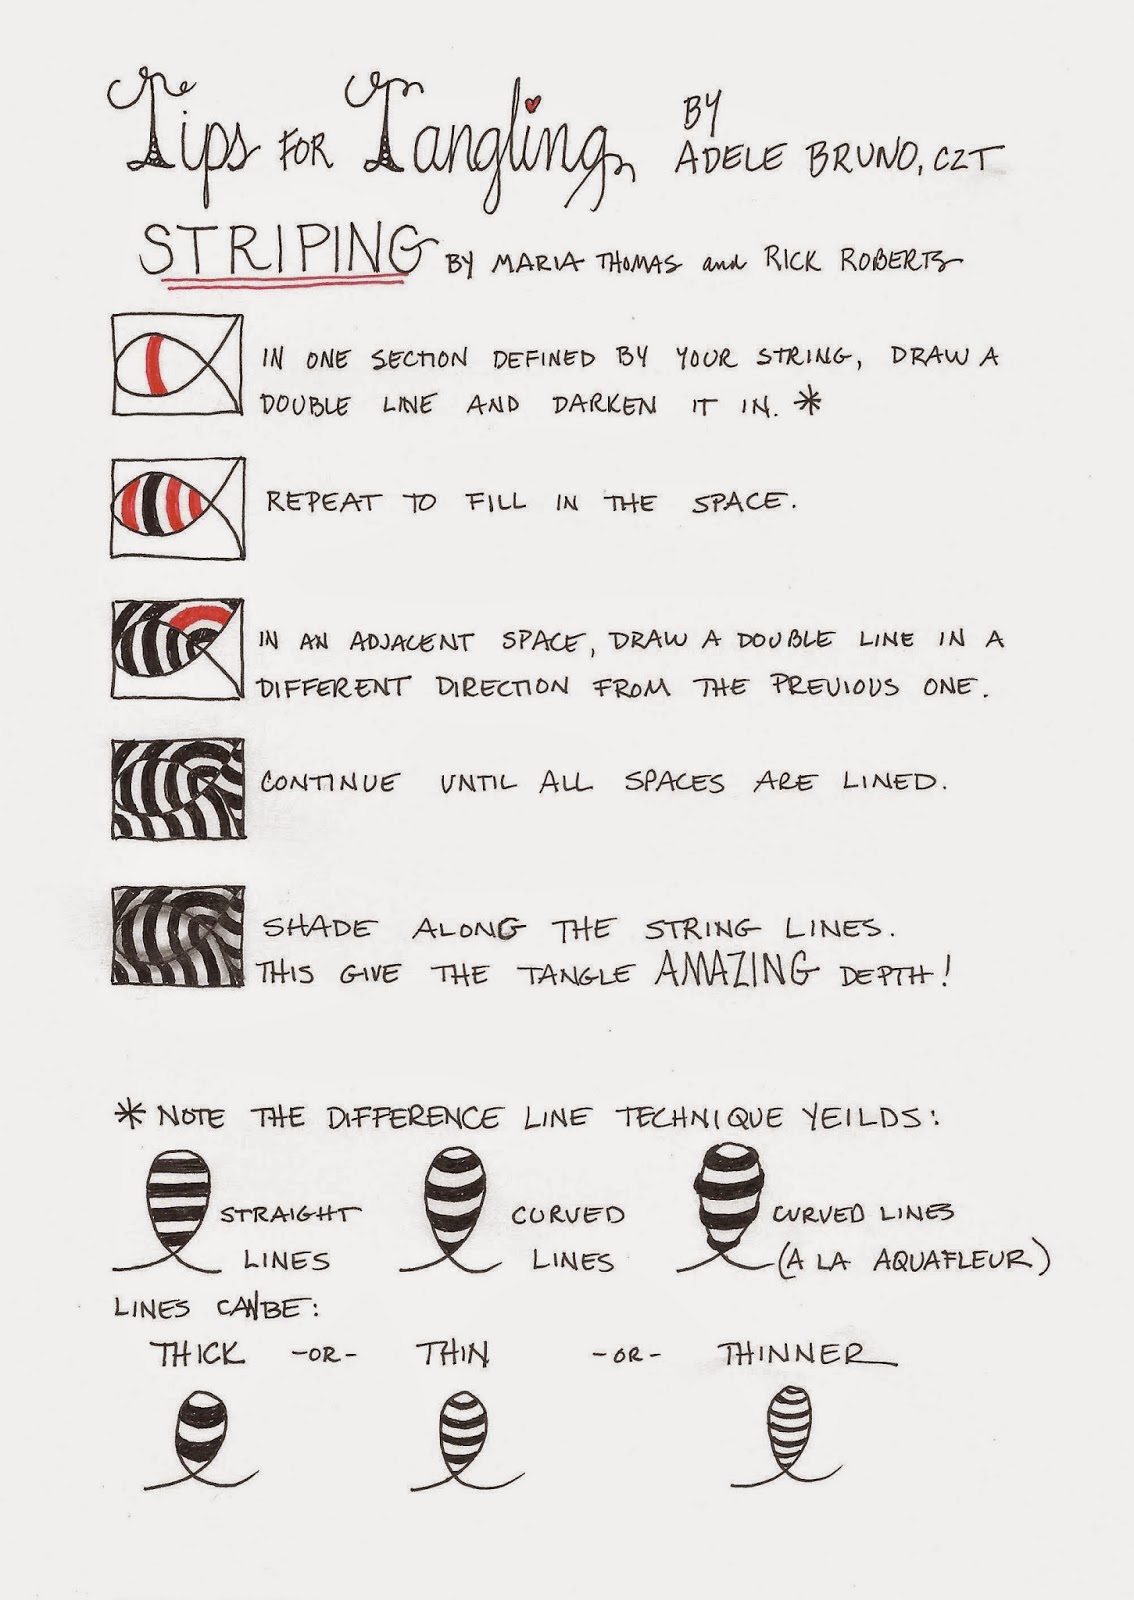 Tips FOR Tangling BY
ADELE BRUNO, CZT
STRIPING BY MARIA THOMAS and RICK ROBERTS
IN ONE SECTION DEFINED BY YOUR STRING, DRAW A
DOUBLE LINE AND DARKEN IT IN. *
REPEAT TO FILL IN THE SPACE.
IN AN ADJACENT SPACE, DRAW A DOUBLE LINE IN A
DIFFERENT DIRECTION FROM THE PREVIOUS ONE.
CONTINUE UNTIL ALL SPACES ARE LINED.
SHADE ALONG THE STRING LINES.
THIS GIVE THE TANGLE AMAZING DEPTH!
* NOTE THE DIFFERENCE LINE TECHNIQUE YEILDS:
STRAIGHT
LINES
CURVED
LINES
CURVED LINES
(A LA AQUAFLEUR)
LINES CAN BE:
THICK -OR- THIN -OR- THINNER